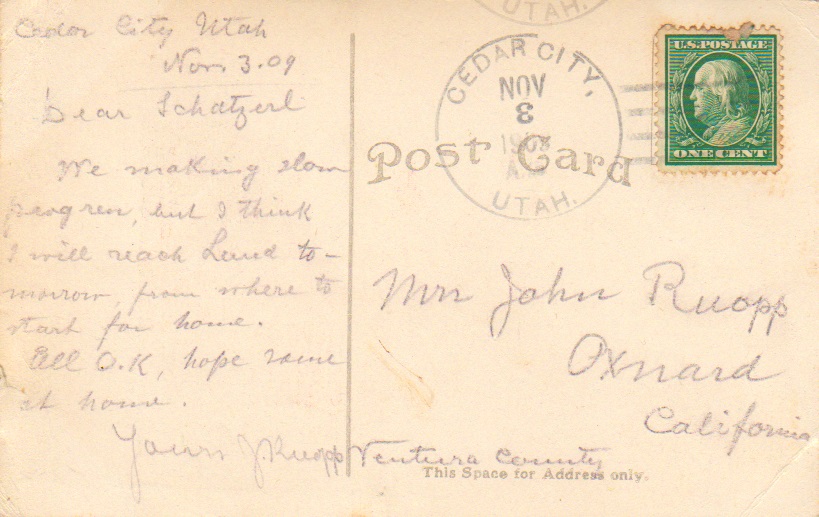 Cedar City Utah
Nov. 3.09
Dear Schatzerl
We making slow
progress, but I think
I will reach Lund to-
morrow, from where to
start for home.
All O.K, hope same
at home.
Yours J Ruopp
UTAH.
CEDAR CITY,
NOV
3
UTAH.
U.S. POSTAGE
ONE CENT
Post Card
Mrs John Ruopp
Oxnard
California
Ventura County
This Space for Address only.